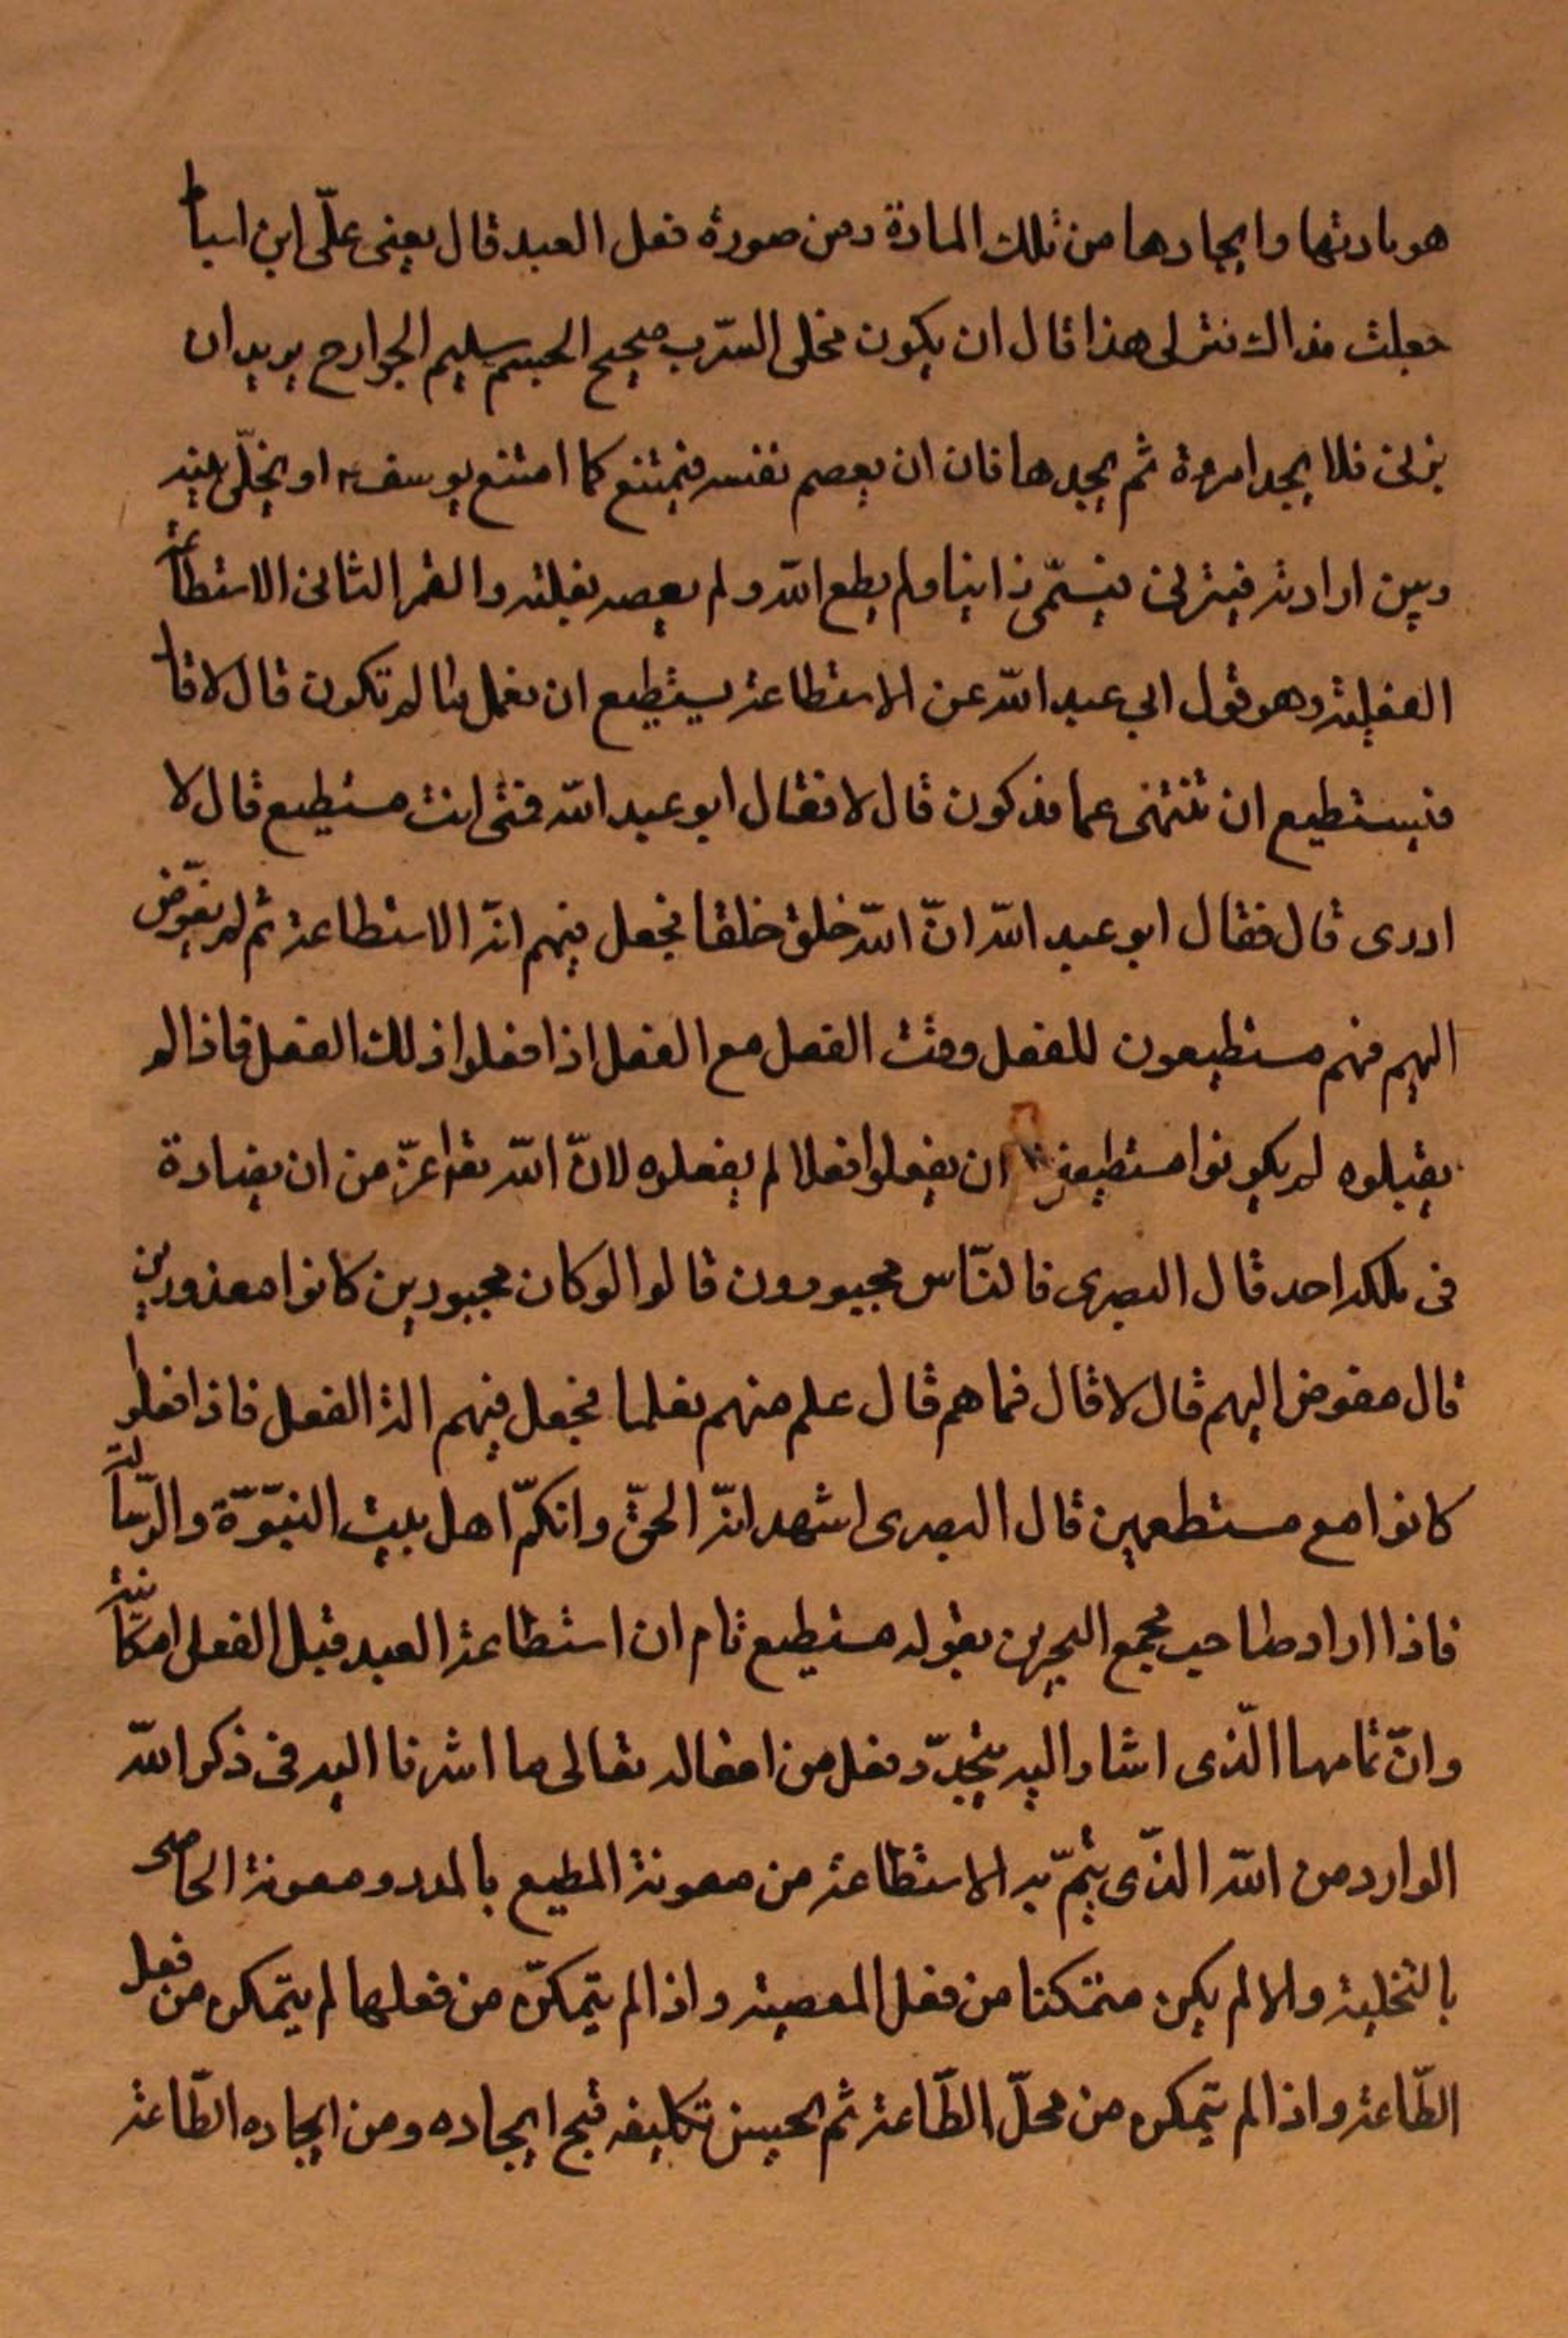 هو مادتها وايجادها من تلك المادة ومن صورة فعل العبد قال يعنى علّى ابن اسباط
جعلت فداك فسّر لى هذا قال ان يكون مخلى السّرب صحيح الجسم سليم الجوارح يريد ان
يزنى فلا يجد امرءة ثم يجدها فان ان يعصم نفسه فيمتنع كما امتنع يوسف او يخلّى بينه
وبين ارادته فيزنى فيسمّى زانيا ولم يطع اللّه ولم يعصه بغلبة والقمر الثانى الاستطاعة
الفعلية وهو قول ابى عبد اللّه عن الاستطاعة يستطيع ان تعمل ما لم تكون قال لا قال
فتستطيع ان تنتهى عما قد كون قال لا فقال ابو عبد اللّه فمتى انت مستطيع قال لا
ادرى قال فقال ابو عبد اللّه انّ اللّه خلق خلقا فجعل فيهم الة الاستطاعة ثم لم يفوّض
اليهم فهم مستطيعون للفعل وقت الفعل مع الفعل اذا فعلوا ذلك الفعل فاذا لم
يفعلوه لم يكونوا مستطيعين ان يفعلوا فعلا لم يفعلوه لانّ اللّه تعا اعزّ من ان يضادة
فى ملكه احد قال البصرى فالنّاس مجبورون قالوا لو كان مجبورين كانوا معذورين
قال مفوض اليهم قال لا قال فما هم قال علم منهم فعلما فجعل فيهم الة الفعل فاذا فعلوا
كانوا مع مستطعين قال البصرى اشهد انّه الحقّ وانكمّ اهل بيت النبّوّة والرّسالة
فاذا اراد صاحب مجمع البحرين بقوله مستطيع تام ان استطاعة العبد قبل الفعل امكانية
وانّ تمامها الّذى اشار اليه يتجدّد فعل من افعاله تعالى ما اشرنا اليه فى ذكر اللّه
الوارد من اللّه الذّى يتمّ به الاستطاعة من معونة المطيع بالمدد ومعونة العاصى
بالتخلية والا لم يكن متمكنا من فعل المعصية واذا لم يتمكّن من فعلها لم يتمكن من فعل
الطّاعة واذا لم يتمكن من محلّ الطّاعة ثم الحسن تكليفه قبح ايجاده ومن ايجاده الطّاعة